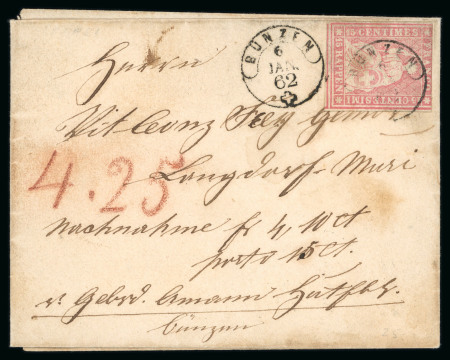 BÜNZEN
6
JAN.
62
BÜNZEN
15 CENTIMES
15 RAPPEN
CENTESIMI
Herrn
Vit Leonz Frey
Langdorf-Muri
4.25
Nachnahme fr 4,10 ct
porto 15 ct.
v. Gebrd. Amann
Bünzen